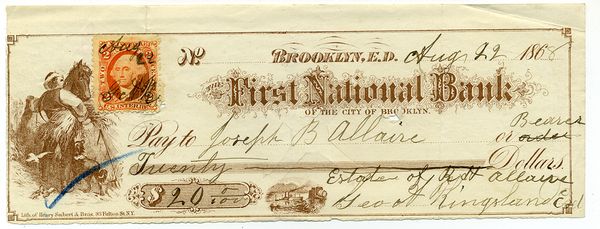 Aug
22
U.S. INTER. REV.
No. BROOKLYN, E.D. Aug 22 1868
THE First National Bank
OF THE CITY OF BROOKLYN.
Pay to Joseph B Allaire or order Bearer
Twenty Dollars
$20.00/100 Estate of Allaire
Geo Kingsland Ex
Lith. of Henry Seibert & Bros. 93 Fulton St. N.Y.